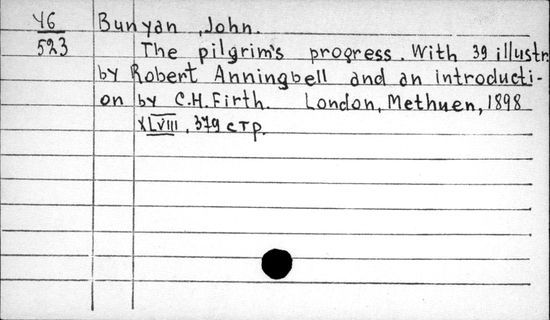 Ч6 Bunyan, John.
523 The pilgrim's progress. With 39 illustr.
by Robert Anningbell and an introducti-
on by C.H. Firth. London, Methuen, 1898
XLVIII, 379 стр.